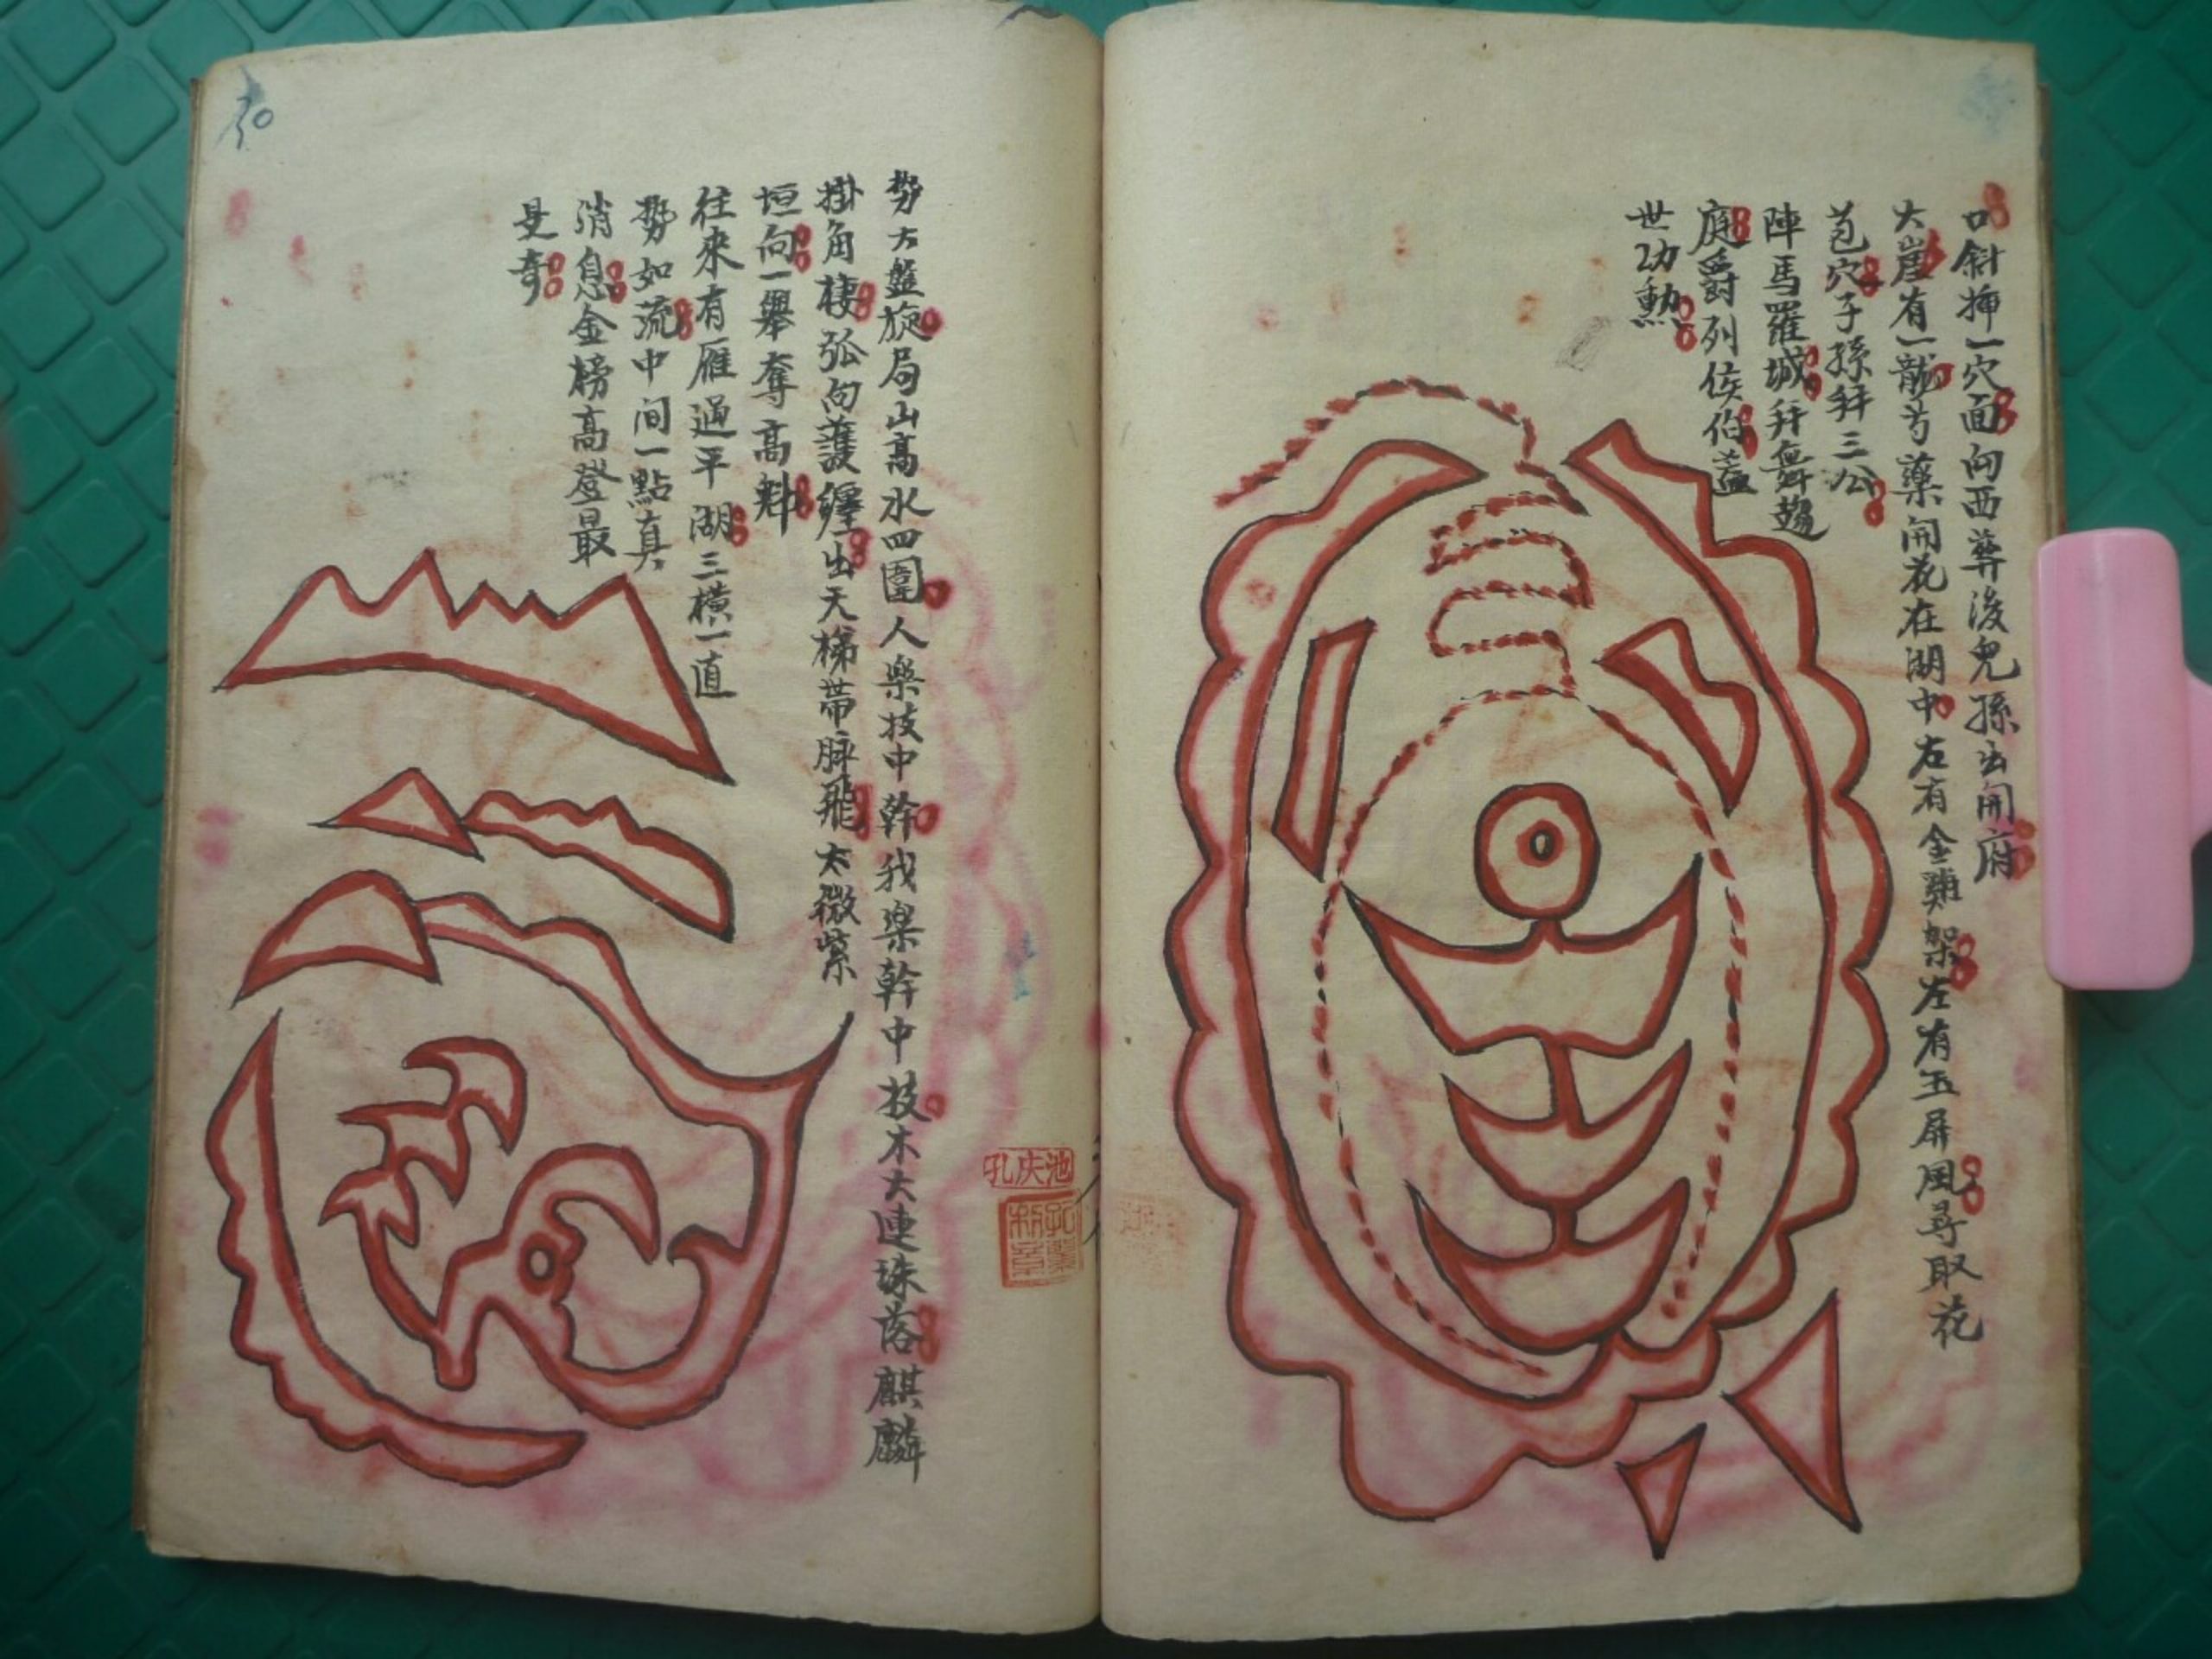 口斜插一穴面向西葬後兒孫出開府
大崖有一龍芍藥開花在湖中右有金雞架左有玉屏風尋取花
苞穴子孫拜三公
陣馬羅城拜舞趨
庭爵列侯伯蓋
世功勳
勢大盤旋局山高水四圍人樂技中幹我樂幹中技木大連珠落麒麟
掛角棲弧向護纏出天梯帶脉飛太微紫
垣向一舉奪高魁
往來有雁過平湖三橫一直
勢如流中間一點真
消息金榜高登最
是奇
池庆孔